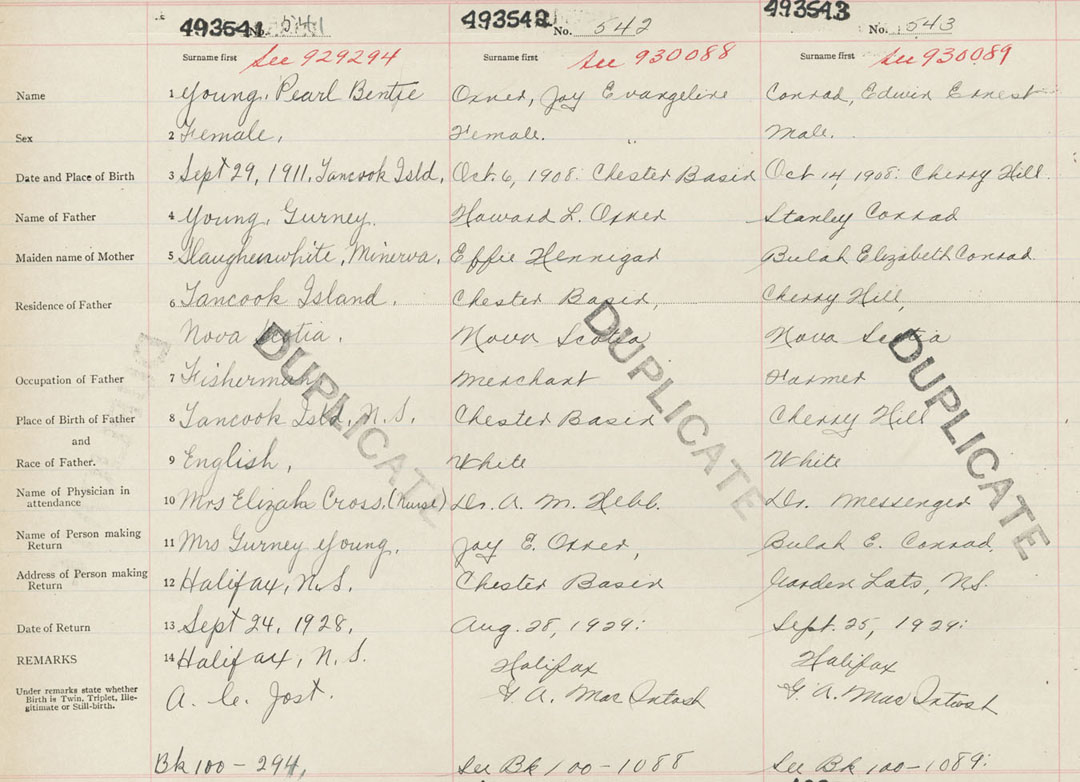 493541 No. 541 493542 No. 542 493543 No. 543
Surname first See 929294 Surname first See 930088 Surname first See 930089
Name 1 Young, Pearl Oxner, Joy Evangeline Conrad, Edwin Ernest
Sex 2 Female. Female. " Male.
Date and Place of Birth 3 Sept 29, 1911. Tancook Isld. Oct. 6, 1908: Chester Basin Oct 14, 1908: Cherry Hill.
Name of Father 4 Young, Gurney. Howard L. Oxner Stanley Conrad
Maiden name of Mother 5 Slaughenwhite, Minerva. Effie Hennigar Bulah Elizabeth Conrad
Residence of Father 6 Tancook Island. Chester Basin, Cherry Hill,
Nova Scotia. Nova Scotia Nova Scotia
Occupation of Father 7 Fisherman Merchant Farmer
Place of Birth of Father 8 Tancook Isld, N.S. Chester Basin Cherry Hill
and
Race of Father. 9 English. White White
Name of Physician in attendance 10 Mrs Elizah Cross. (Nurse) Dr. A. M. Hebb. Dr. Messenger
Name of Person making Return 11 Mrs Gurney Young. Joy E. Oxner, Bulah E. Conrad.
Address of Person making Return 12 Halifax, N.S. Chester Basin Garden Lots, N.S.
Date of Return 13 Sept 24, 1928. Aug. 28, 1929: Sept. 25, 1929:
REMARKS 14 Halifax, N.S. Halifax Halifax
Under remarks state whether Birth is Twin, Triplet, Illegitimate or Still-birth. A. C. Jost. G. A. MacIntosh G. A. MacIntosh
Bk 100 - 294, See Bk 100-1088 See Bk 100-1089:
DUPLICATE
DUPLICATE
DUPLICATE